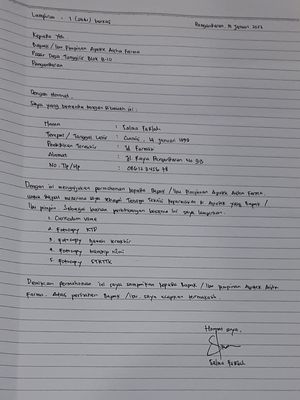 Lampiran : 1 (satu) berkas
Pangandaran, 14 Januari 2022
Kepada Yth
Bapak / Ibu Pimpinan Apotek Aisha Farma
Pasar Desa Blok B-10
Pangandaran
Dengan Hormat,
Saya yang bertanda tangan dibawah ini :
Nama : Salwa
Tempat / Tanggal Lahir : Ciamis, 14 Januari 1999
Pendidikan Terakhir : D3 Farmasi
Alamat : Jl. Raya Pangandaran No
No. Tlp / Hp :
Dengan ini mengajukan permohonan kepada Bapak / Ibu Pimpinan Apotek Aisha Farma,
untuk dapat Tenaga Teknis Kefarmasian di Apotek yang Bapak /
Ibu pimpin. Sebagai bahan pertimbangan bersama ini saya lampirkan :
1. Curiculum Vitae
2. Fotocopy KTP
3. Fotocopy Ijazah terakhir
4. Fotocopy transkip nilai
5. Fotocopy STRTTK
Demikian permohonan ini saya sampaikan kepada Bapak / Ibu Pimpinan Apotek Aisha
Farma. Atas perhatian Bapak / Ibu, saya ucapkan terimakasih.
Hormat saya,
Salwa